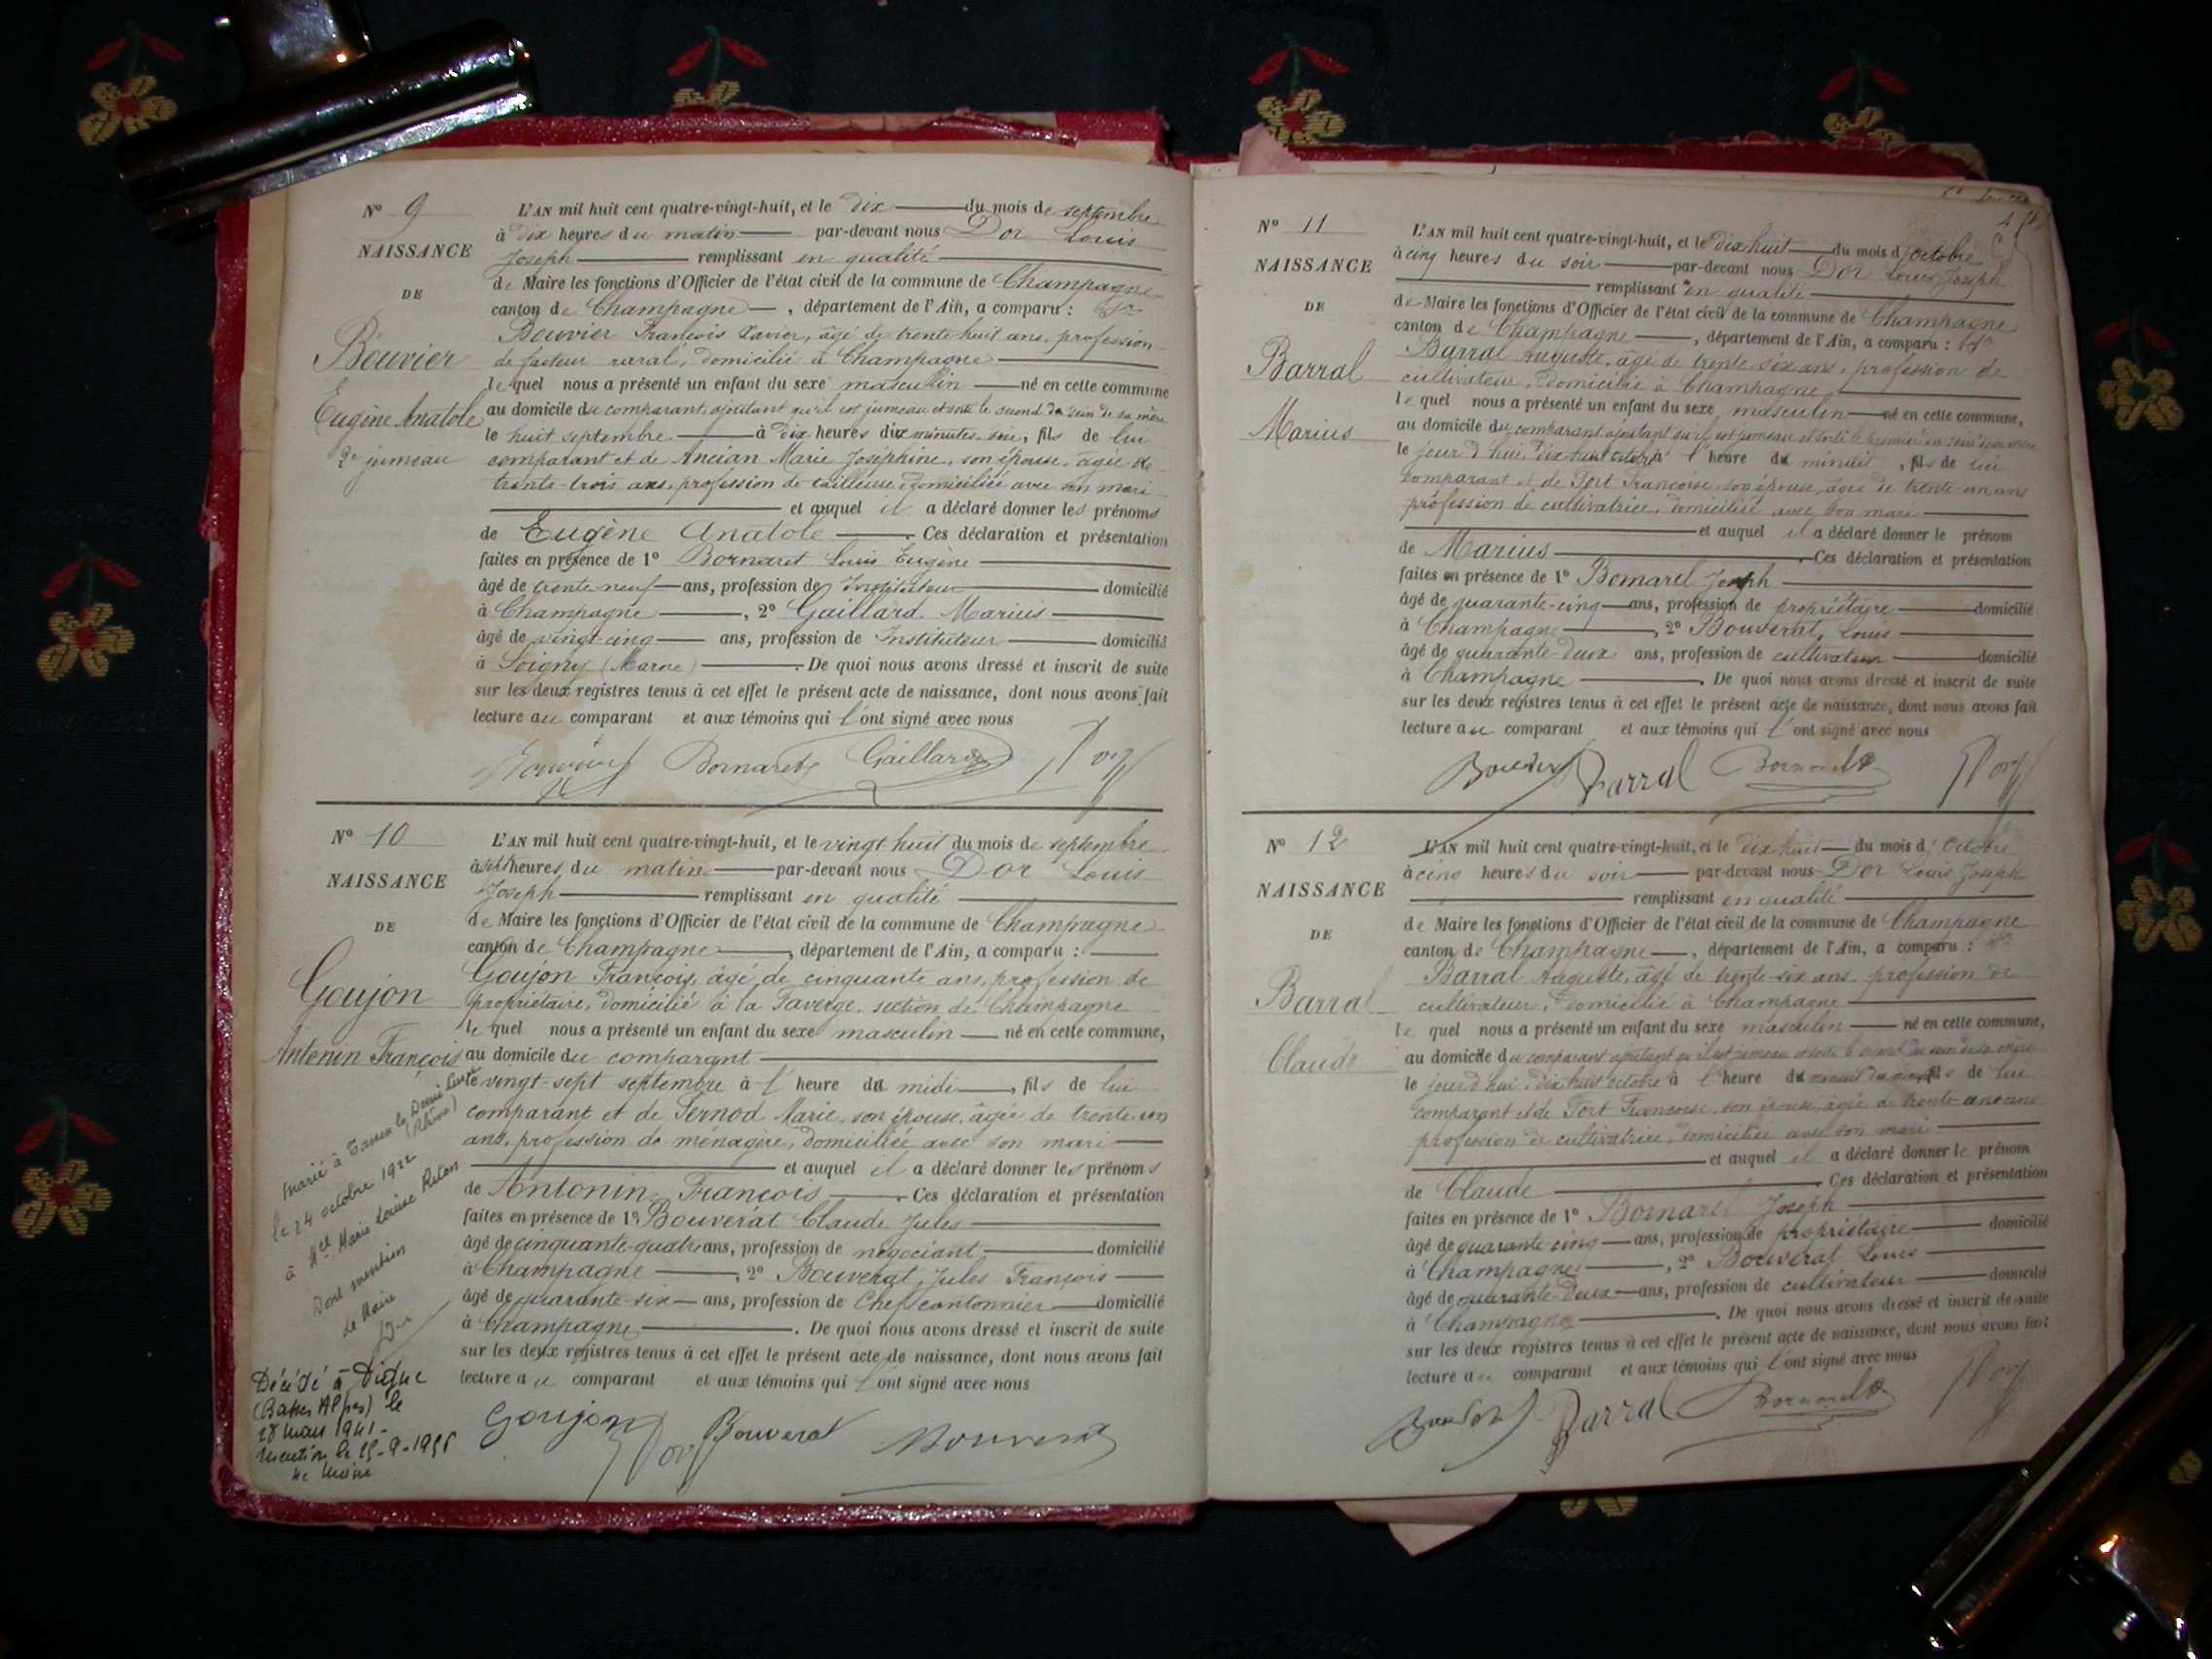 N° 9
NAISSANCE
DE
Bouvier
Eugène Anatole
2e jumeau
L'AN mil huit cent quatre-vingt-huit, et le dix du mois de septembre
à dix heures du matin par-devant nous Dor Louis
Joseph remplissant en qualité
de Maire les fonctions d'Officier de l'état civil de la commune de Champagne
canton de Champagne, département de l'Ain, a comparu :
Bouvier François Xavier, âgé de trente huit ans, profession
de facteur rural, domicilié à Champagne
lequel nous a présenté un enfant du sexe masculin né en cette commune
au domicile du comparant, ajoutant qu'il est jumeau et sorti le second du sein de sa mère
le huit septembre à dix heures dix minutes soir, fils de lui
comparant et de Ancian Marie Joséphine, son épouse, âgée de
trente-trois ans, profession de tailleuse, domiciliée avec son mari
et auquel il a déclaré donner les prénoms
de Eugène Anatole. Ces déclaration et présentation
faites en présence de 1° Bornarel Louis Eugène
âgé de trente-neuf ans, profession de Instituteur domicilié
à Champagne, 2° Gaillard Marius
âgé de vingt-cinq ans, profession de Instituteur domicilié
à Soigny (Marne). De quoi nous avons dressé et inscrit de suite
sur les deux registres tenus à cet effet le présent acte de naissance, dont nous avons fait
lecture au comparant et aux témoins qui l'ont signé avec nous
Bouvier Bornarel Gaillard Dor
N° 10
NAISSANCE
DE
Goujon
Antonin François
L'AN mil huit cent quatre-vingt-huit, et le vingt huit du mois de septembre
à sept heures du matin par-devant nous Dor Louis
Joseph remplissant en qualité
de Maire les fonctions d'Officier de l'état civil de la commune de Champagne
canton de Champagne, département de l'Ain, a comparu :
Goujon François, âgé de cinquante ans, profession de
propriétaire, domicilié à la Taverge, section de Champagne
lequel nous a présenté un enfant du sexe masculin né en cette commune,
au domicile du comparant
le vingt-sept septembre à l'heure du midi, fils de lui
comparant et de Pernod Marie, son épouse, âgée de trente un
ans, profession de ménagère, domiciliée avec son mari
et auquel il a déclaré donner les prénoms
de Antonin François. Ces déclaration et présentation
faites en présence de 1° Bouverat Claude Jules
âgé de cinquante-quatre ans, profession de négociant domicilié
à Champagne, 2° Bouverat Jules François
âgé de quarante-six ans, profession de Chef cantonnier domicilié
à Champagne. De quoi nous avons dressé et inscrit de suite
sur les deux registres tenus à cet effet le présent acte de naissance, dont nous avons fait
lecture au comparant et aux témoins qui l'ont signé avec nous
Goujon Dor Bouverat Bouverat
Marié à la Demi Lune
(Rhône)
le 24 octobre 1922
à Melle Marie Louise
Dont mention
Le Maire
Décédé à Digne
(Basses Alpes) le
28 mars 1941 -
mention le 25-9-1956
Le Maire
N° 11
NAISSANCE
DE
Barral
Marius
L'AN mil huit cent quatre-vingt-huit, et le dix huit du mois d'octobre
à cinq heures du soir par-devant nous Dor Louis Joseph
remplissant en qualité
de Maire les fonctions d'Officier de l'état civil de la commune de Champagne
canton de Champagne, département de l'Ain, a comparu :
Barral Auguste, âgé de trente six ans, profession de
cultivateur, domicilié à Champagne
lequel nous a présenté un enfant du sexe masculin né en cette commune,
au domicile du comparant ajoutant qu'il est jumeau et sorti le premier du sein de sa mère
le jour d'hui dix huit octobre à l'heure de minuit, fils de lui
comparant et de Fort Françoise, son épouse, âgée de trente-un ans
profession de cultivatrice, domiciliée avec son mari
et auquel il a déclaré donner le prénom
de Marius. Ces déclaration et présentation
faites en présence de 1° Bornarel Joseph
âgé de quarante-cinq ans, profession de propriétaire domicilié
à Champagne, 2° Bouverat, Louis
âgé de quarante-deux ans, profession de cultivateur domicilié
à Champagne. De quoi nous avons dressé et inscrit de suite
sur les deux registres tenus à cet effet le présent acte de naissance, dont nous avons fait
lecture au comparant et aux témoins qui l'ont signé avec nous
Barral Bornarel Dor
N° 12
NAISSANCE
DE
Barral
Claude
L'AN mil huit cent quatre-vingt-huit, et le dix huit du mois d'Octobre
à cinq heures du soir par-devant nous Dor Louis Joseph
remplissant en qualité
de Maire les fonctions d'Officier de l'état civil de la commune de Champagne
canton de Champagne, département de l'Ain, a comparu :
Barral Auguste, âgé de trente-six ans, profession de
cultivateur, domicilié à Champagne
lequel nous a présenté un enfant du sexe masculin né en cette commune,
au domicile du comparant ajoutant qu'il est jumeau et sorti le second du sein de sa mère
le jour d'hui, dix huit octobre à l'heure de fils de lui
comparant et de Fort Françoise, son épouse, âgée de trente un ans
profession de cultivatrice, domiciliée avec son mari
et auquel il a déclaré donner le prénom
de Claude. Ces déclaration et présentation
faites en présence de 1° Bornarel Joseph
âgé de quarante cinq ans, profession de propriétaire domicilié
à Champagne, 2° Bouverat Louis
âgé de quarante-deux ans, profession de cultivateur domicilié
à Champagne. De quoi nous avons dressé et inscrit de suite
sur les deux registres tenus à cet effet le présent acte de naissance, dont nous avons fait
lecture au comparant et aux témoins qui l'ont signé avec nous
Barral Bornarel Dor